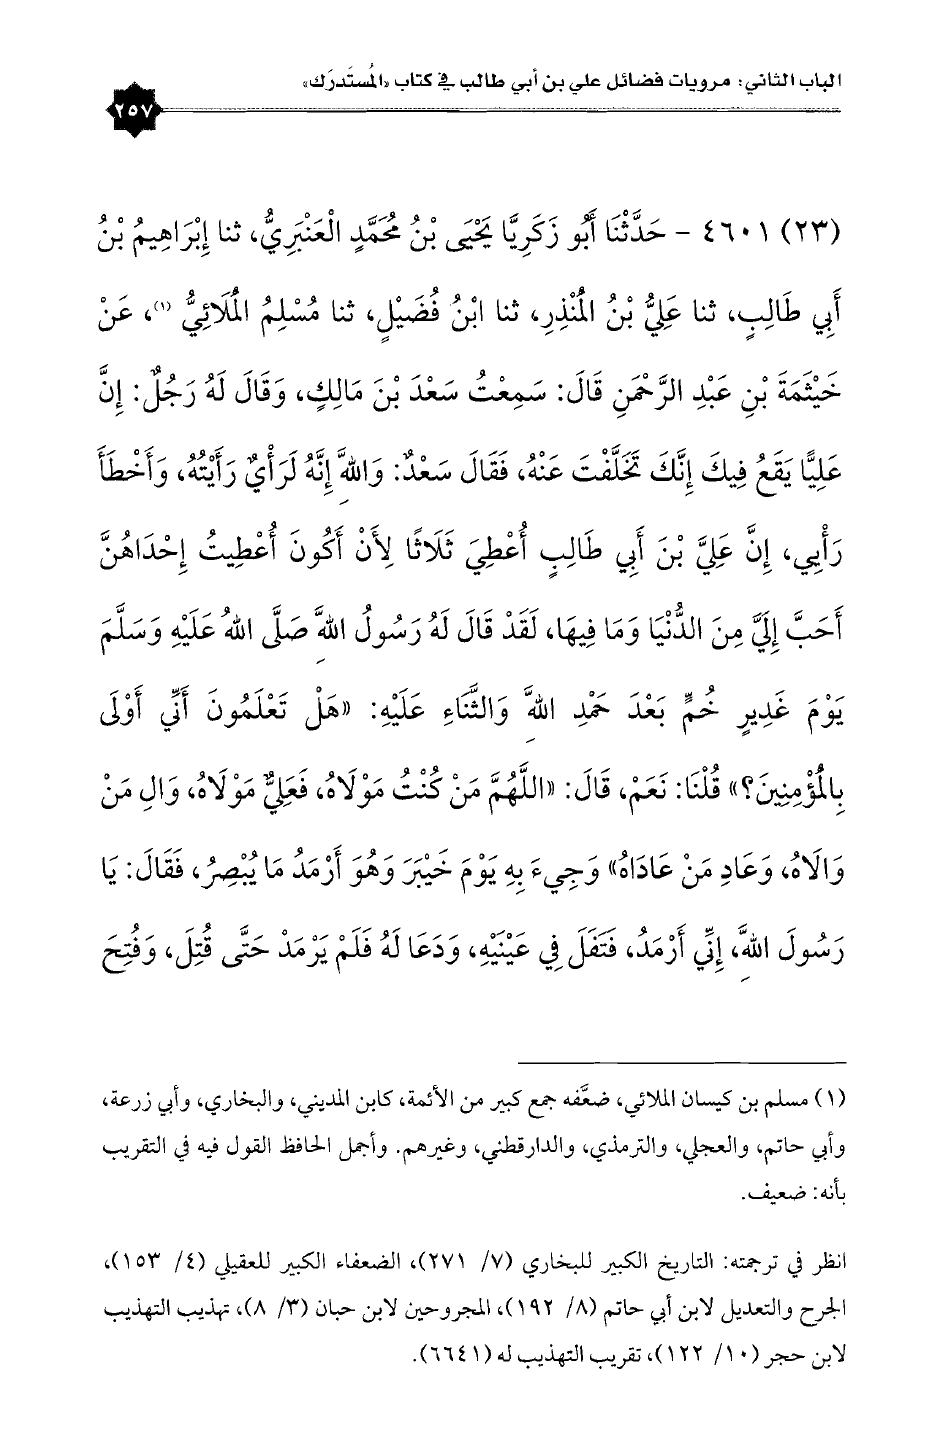 الباب الثاني: مرويات فضائل علي بن أبي طالب في كتاب «المُستَدرَك»
٢٥٧
(٢٣) ٤٦٠١ - حَدَّثَنَا أَبُو زَكَرِيَّا يَحْيَى بْنُ مُحَمَّدٍ الْعَنْبَرِيُّ، ثنا إِبْرَاهِيمُ بْنُ
أَبِي طَالِبٍ، ثنا عَلِيُّ بْنُ الْمُنْذِرِ، ثنا ابْنُ فُضَيْلٍ، ثنا مُسْلِمُ الْمُلَائِيُّ (١)، عَنْ
خَيْثَمَةَ بْنِ عَبْدِ الرَّحْمَنِ قَالَ: سَمِعْتُ سَعْدَ بْنَ مَالِكٍ، وَقَالَ لَهُ رَجُلٌ: إِنَّ
عَلِيًّا يَقَعُ فِيكَ إِنَّكَ تَخَلَّفْتَ عَنْهُ، فَقَالَ سَعْدٌ: وَاللهِ إِنَّهُ لَرَأْيٌ رَأَيْتُهُ، وَأَخْطَأَ
رَأْيِي، إِنَّ عَلِيَّ بْنَ أَبِي طَالِبٍ أُعْطِيَ ثَلَاثًا لِأَنْ أَكُونَ أُعْطِيتُ إِحْدَاهُنَّ
أَحَبَّ إِلَيَّ مِنَ الدُّنْيَا وَمَا فِيهَا، لَقَدْ قَالَ لَهُ رَسُولُ اللهِ صَلَّى اللهُ عَلَيْهِ وَسَلَّمَ
يَوْمَ غَدِيرِ خُمٍّ بَعْدَ حَمْدِ اللهِ وَالثَّنَاءِ عَلَيْهِ: «هَلْ تَعْلَمُونَ أَنِّي أَوْلَى
بِالْمُؤْمِنِينَ؟» قُلْنَا: نَعَمْ، قَالَ: «اللَّهُمَّ مَنْ كُنْتُ مَوْلَاهُ، فَعَلِيٌّ مَوْلَاهُ، وَالِ مَنْ
وَالَاهُ، وَعَادِ مَنْ عَادَاهُ» وَجِيءَ بِهِ يَوْمَ خَيْبَرَ وَهُوَ أَرْمَدُ مَا يُبْصِرُ، فَقَالَ: يَا
رَسُولَ اللهِ، إِنِّي أَرْمَدُ، فَتَفَلَ فِي عَيْنَيْهِ، وَدَعَا لَهُ فَلَمْ يَرْمَدْ حَتَّى قُتِلَ، وَفُتِحَ
(١) مسلم بن كيسان الملائي، ضعَّفه جمع كبير من الأئمة، كابن المديني، والبخاري، وأبي زرعة،
وأبي حاتم، والعجلي، والترمذي، والدارقطني، وغيرهم. وأجمل الحافظ القول فيه في التقريب
بأنه: ضعيف.
انظر في ترجمته: التاريخ الكبير للبخاري (٧/ ٢٧١)، الضعفاء الكبير للعقيلي (٤/ ١٥٣)،
الجرح والتعديل لابن أبي حاتم (٨/ ١٩٢)، المجروحين لابن حبان (٣/ ٨)، تهذيب التهذيب
لابن حجر (١٠/ ١٢٢)، تقريب التهذيب له (٦٦٤١).